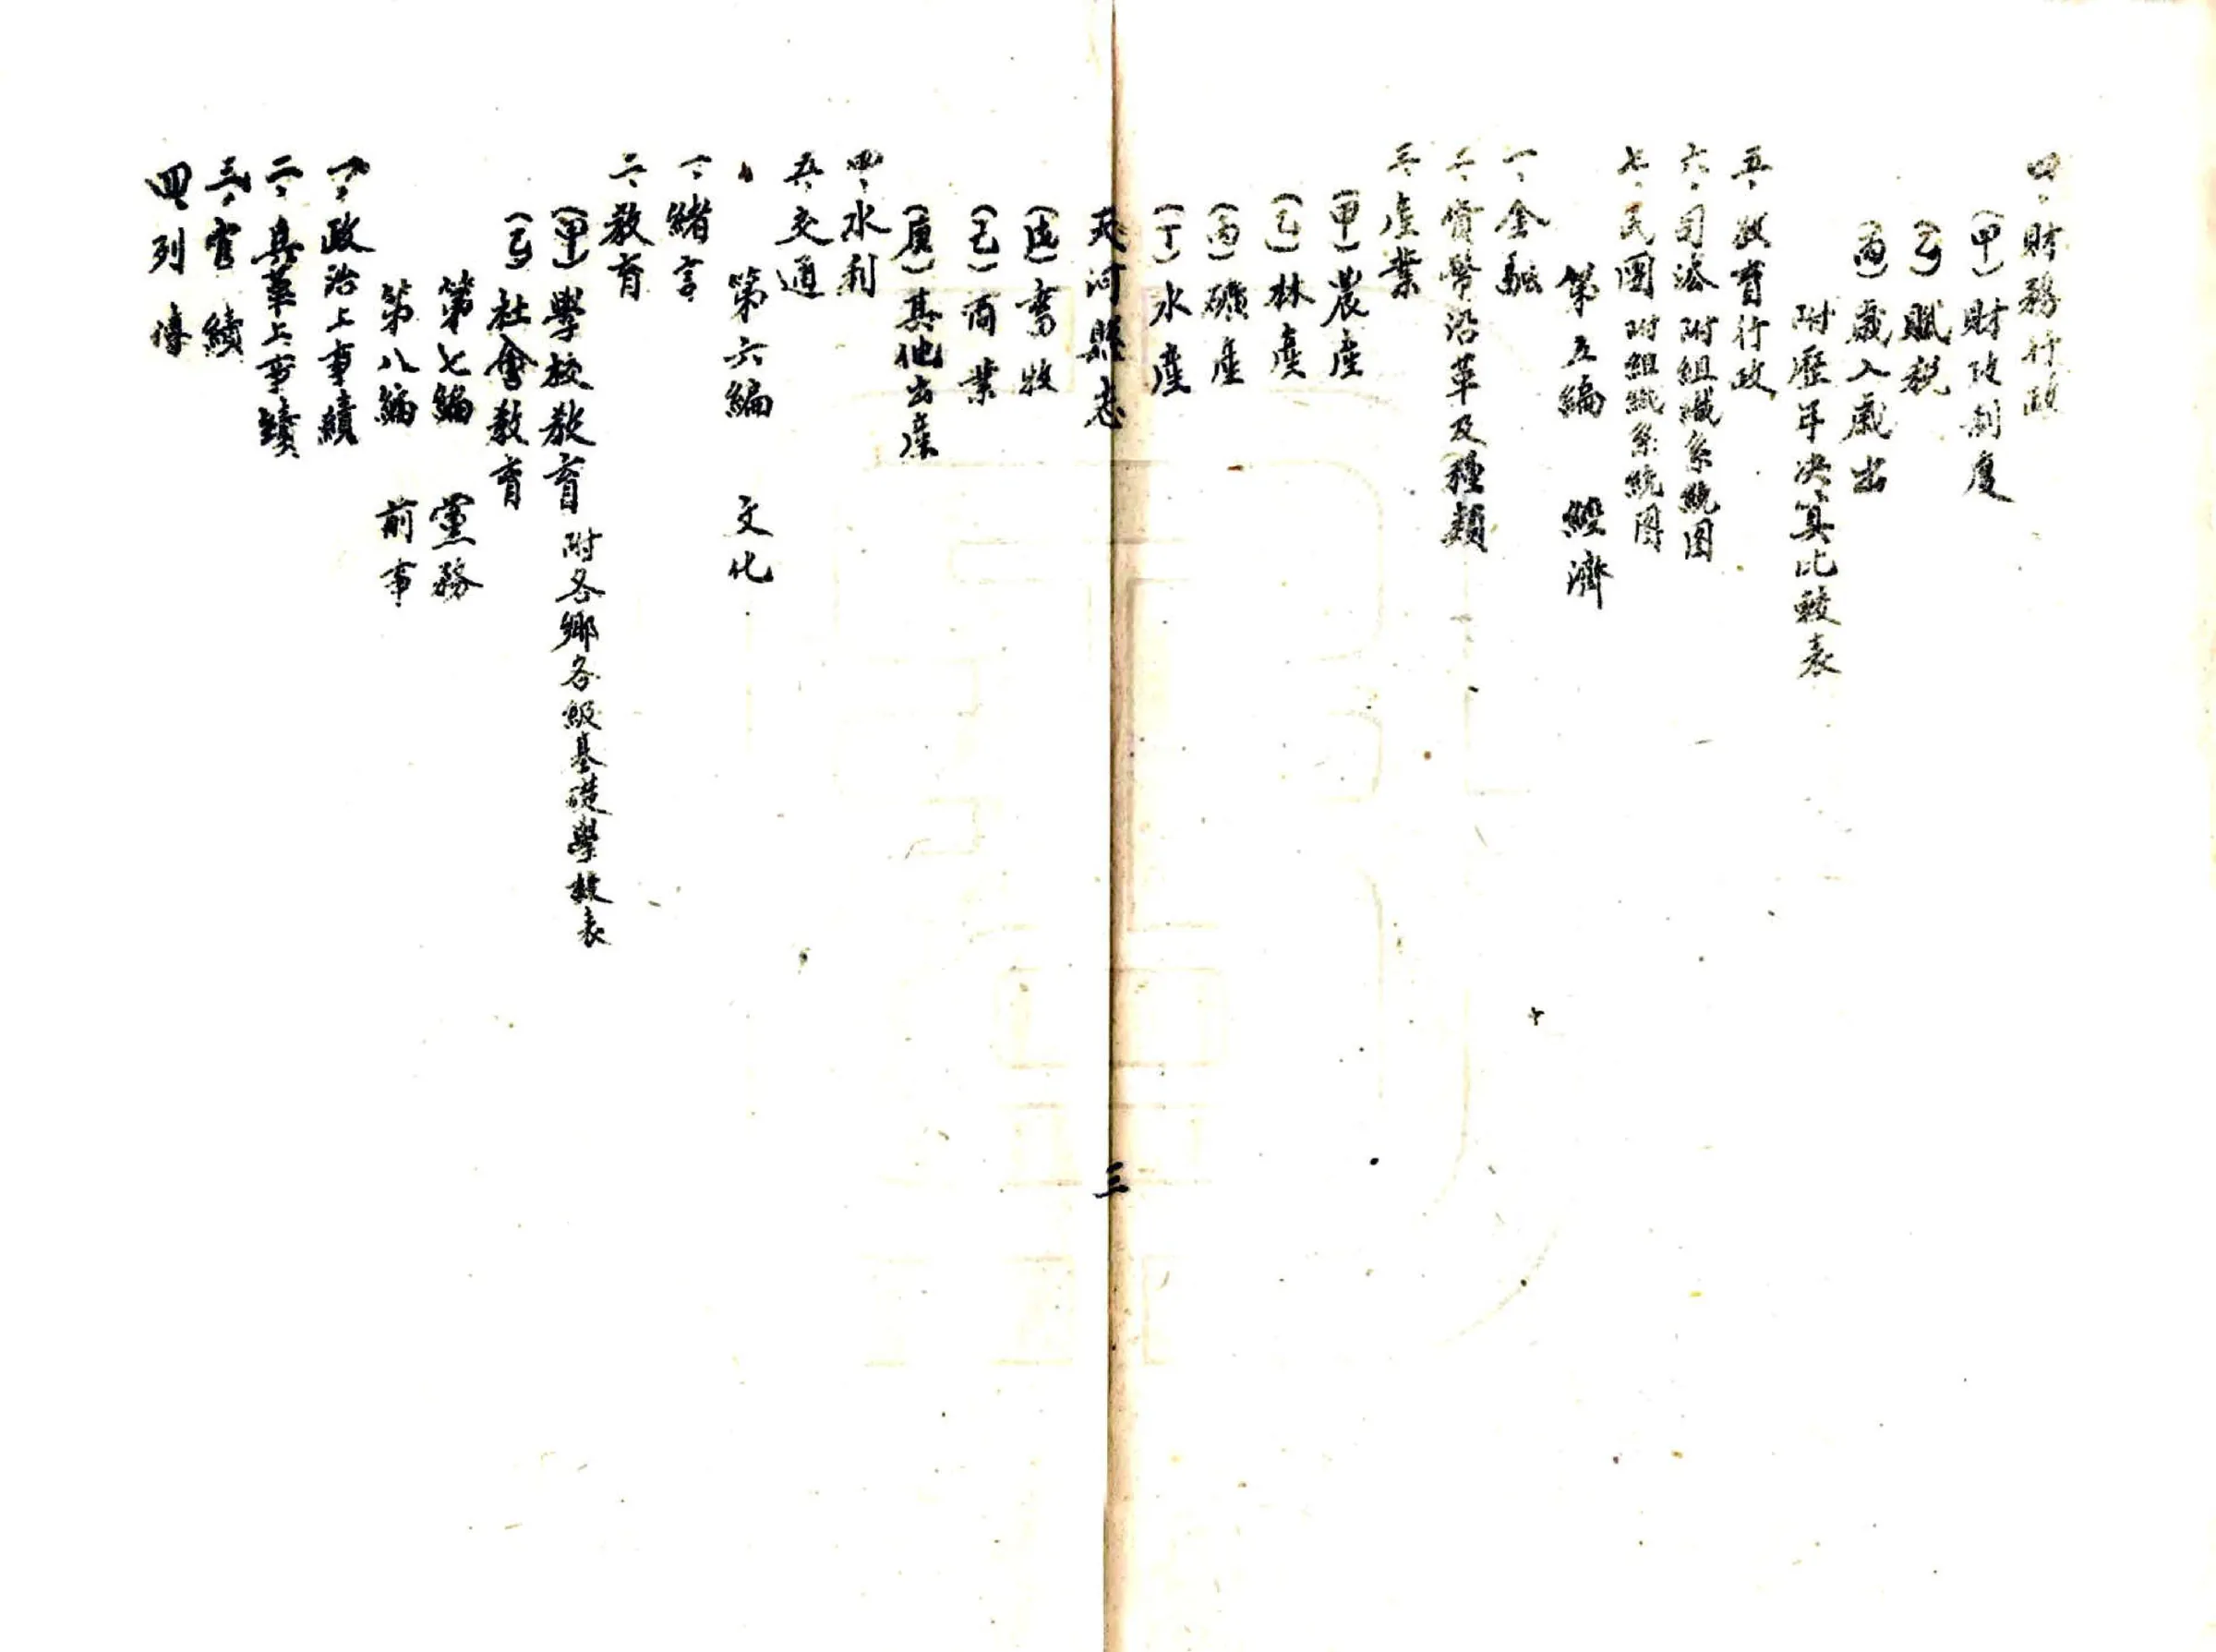 四、財務行政
(甲)財政制度
(乙)賦稅
(丙)歲入歲出
附歷年決算比較表
五、教育行政
六、司法 附組織系統図
七、民團 附組織系統図
第五編 經濟
一、金融
二、貨幣沿革及種類
三、產業
(甲)農產
(乙)林產
(丙)礦產
(丁)水產
天河縣志 三
(戊)畜牧
(己)商業
(庚)其他出產
四、水利
五、交通
第六編 文化
一、緒言
二、教育
(甲)學校教育 附各鄉各級基礎學校表
(乙)社會教育
第七編 黨務
第八編 前事
一、政治上事績
二、兵革上事績
三、官績
四、列傳